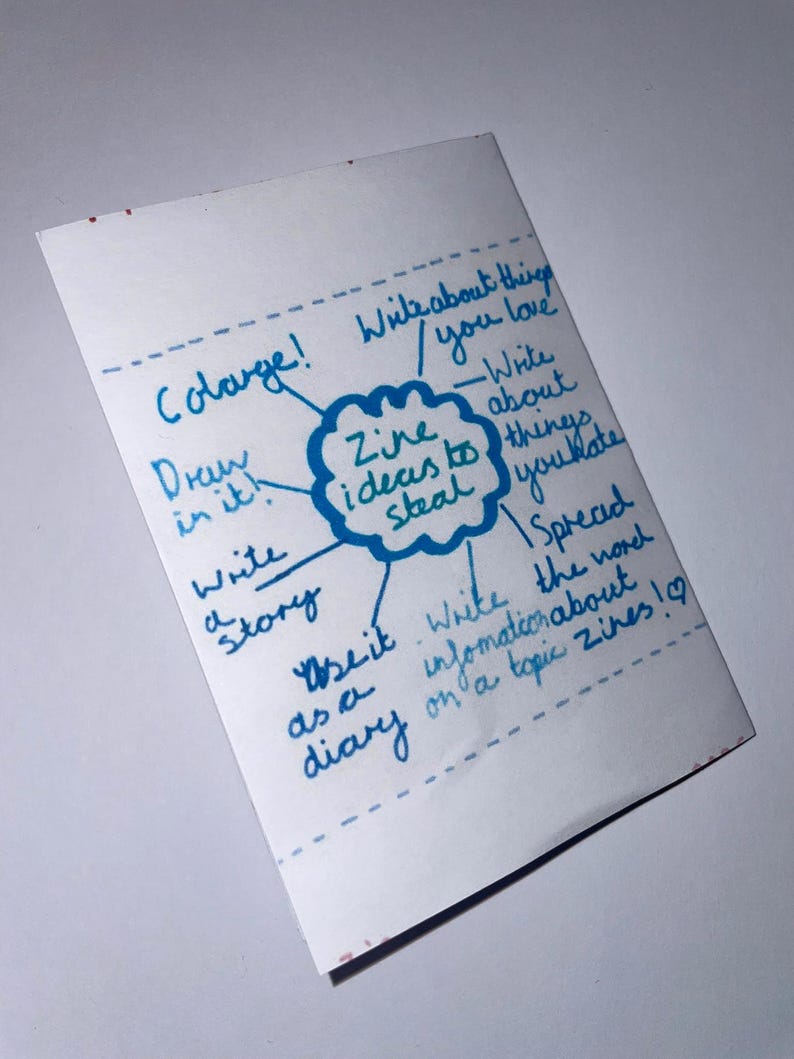 Zine
ideas to
steal
Write about things
you love
Write
about
things
you hate
Spread
the word
about
Zines! ♡
Write
infomation
on a topic
Use it
as a
diary
Write
a
story
Draw
in it!
Colarge!